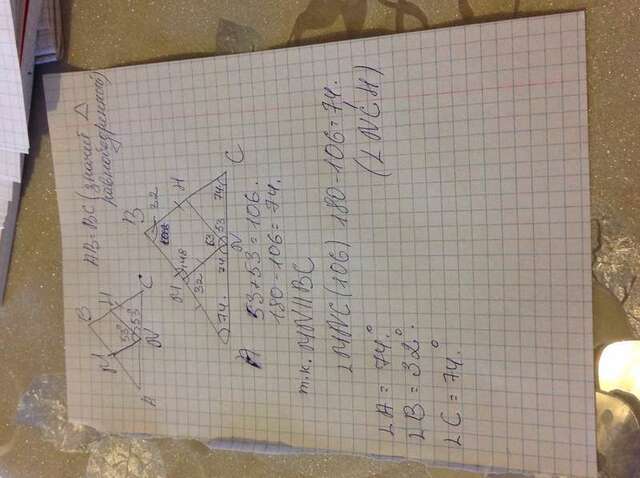 AB = BC (значит △
равнобедренный)
B
M
H
53
53
A
N
C
B
32
M
H
148
32
53
74
74
53
74
A
N
C
53+53=106.
180-106=74.
т.к. MN||BC
∠MNC(106) 180-106=74.
(∠NCH)
∠A = 74°
∠B = 32°.
∠C = 74°.